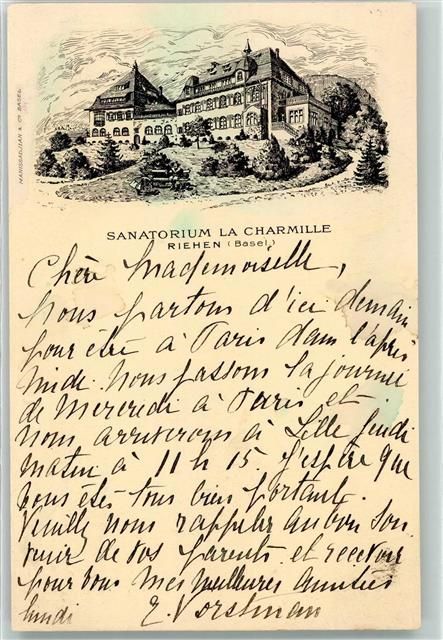 MANISSADJIAN & Co BASEL.
SANATORIUM LA CHARMILLE
RIEHEN (Basel)
Chère Mademoiselle,
Nous partons d'ici demain
pour être à Paris dans l'après
midi. Nous passons la journée
de Mercredi à Paris et
nous arriverons à Lille Jeudi
matin à 11 h 15. J'espère que
vous êtes tous bien portant.
Veuillez nous rappeler au bon sou
venir de vos parents et recevoir
pour vous mes meilleures amitiés
lundi E. Vorstman